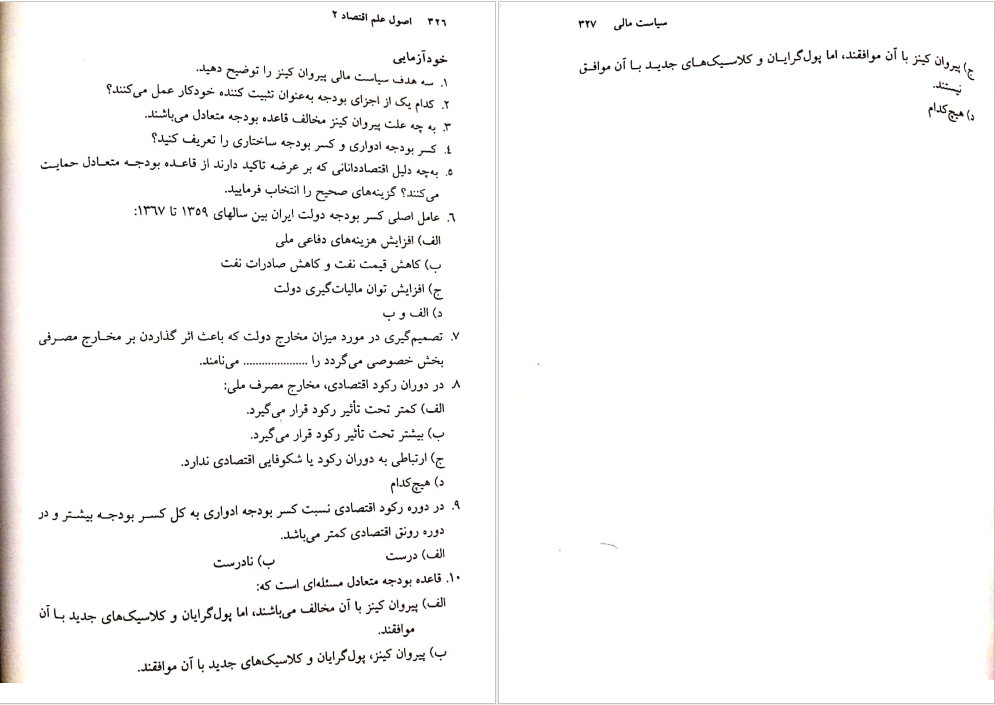 ۳۲۶ اصول علم اقتصاد ۲
خودآزمایی
۱. سه هدف سیاست مالی پیروان کینز را توضیح دهید.
۲. کدام یک از اجزای بودجه به‌عنوان تثبیت کننده خودکار عمل می‌کنند؟
۳. به چه علت پیروان کینز مخالف قاعده بودجه متعادل می‌باشند.
٤. کسر بودجه ادواری و کسر بودجه ساختاری را تعریف کنید؟
۵. به‌چه دلیل اقتصاددانانی که بر عرضه تاکید دارند از قاعده بودجه متعادل حمایت
می‌کنند؟ گزینه‌های صحیح را انتخاب فرمایید.
۶. عامل اصلی کسر بودجه دولت ایران بین سالهای ۱۳۵۹ تا ۱۳۶۷:
الف) افزایش هزینه‌های دفاعی ملی
ب) کاهش قیمت نفت و کاهش صادرات نفت
ج) افزایش توان مالیات‌گیری دولت
د) الف و ب
۷. تصمیم‌گیری در مورد میزان مخارج دولت که باعث اثر گذاردن بر مخارج مصرفی
بخش خصوصی می‌گردد را ..................... می‌نامند.
۸. در دوران رکود اقتصادی، مخارج مصرف ملی:
الف) کمتر تحت تأثیر رکود قرار می‌گیرد.
ب) بیشتر تحت تأثیر رکود قرار می‌گیرد.
ج) ارتباطی به دوران رکود یا شکوفایی اقتصادی ندارد.
د) هیچ‌کدام
۹. در دوره رکود اقتصادی نسبت کسر بودجه ادواری به کل کسر بودجه بیشتر و در
دوره رونق اقتصادی کمتر می‌باشد.
الف) درست ب) نادرست
۱۰. قاعده بودجه متعادل مسئله‌ای است که:
الف) پیروان کینز با آن مخالف می‌باشند، اما پول‌گرایان و کلاسیک‌های جدید با آن
موافقند.
ب) پیروان کینز، پول‌گرایان و کلاسیک‌های جدید با آن موافقند.
سیاست مالی ۳۲۷
ج) پیروان کینز با آن موافقند، اما پول‌گرایان و کلاسیک‌های جدید با آن موافق
نیستند.
د) هیچ‌کدام